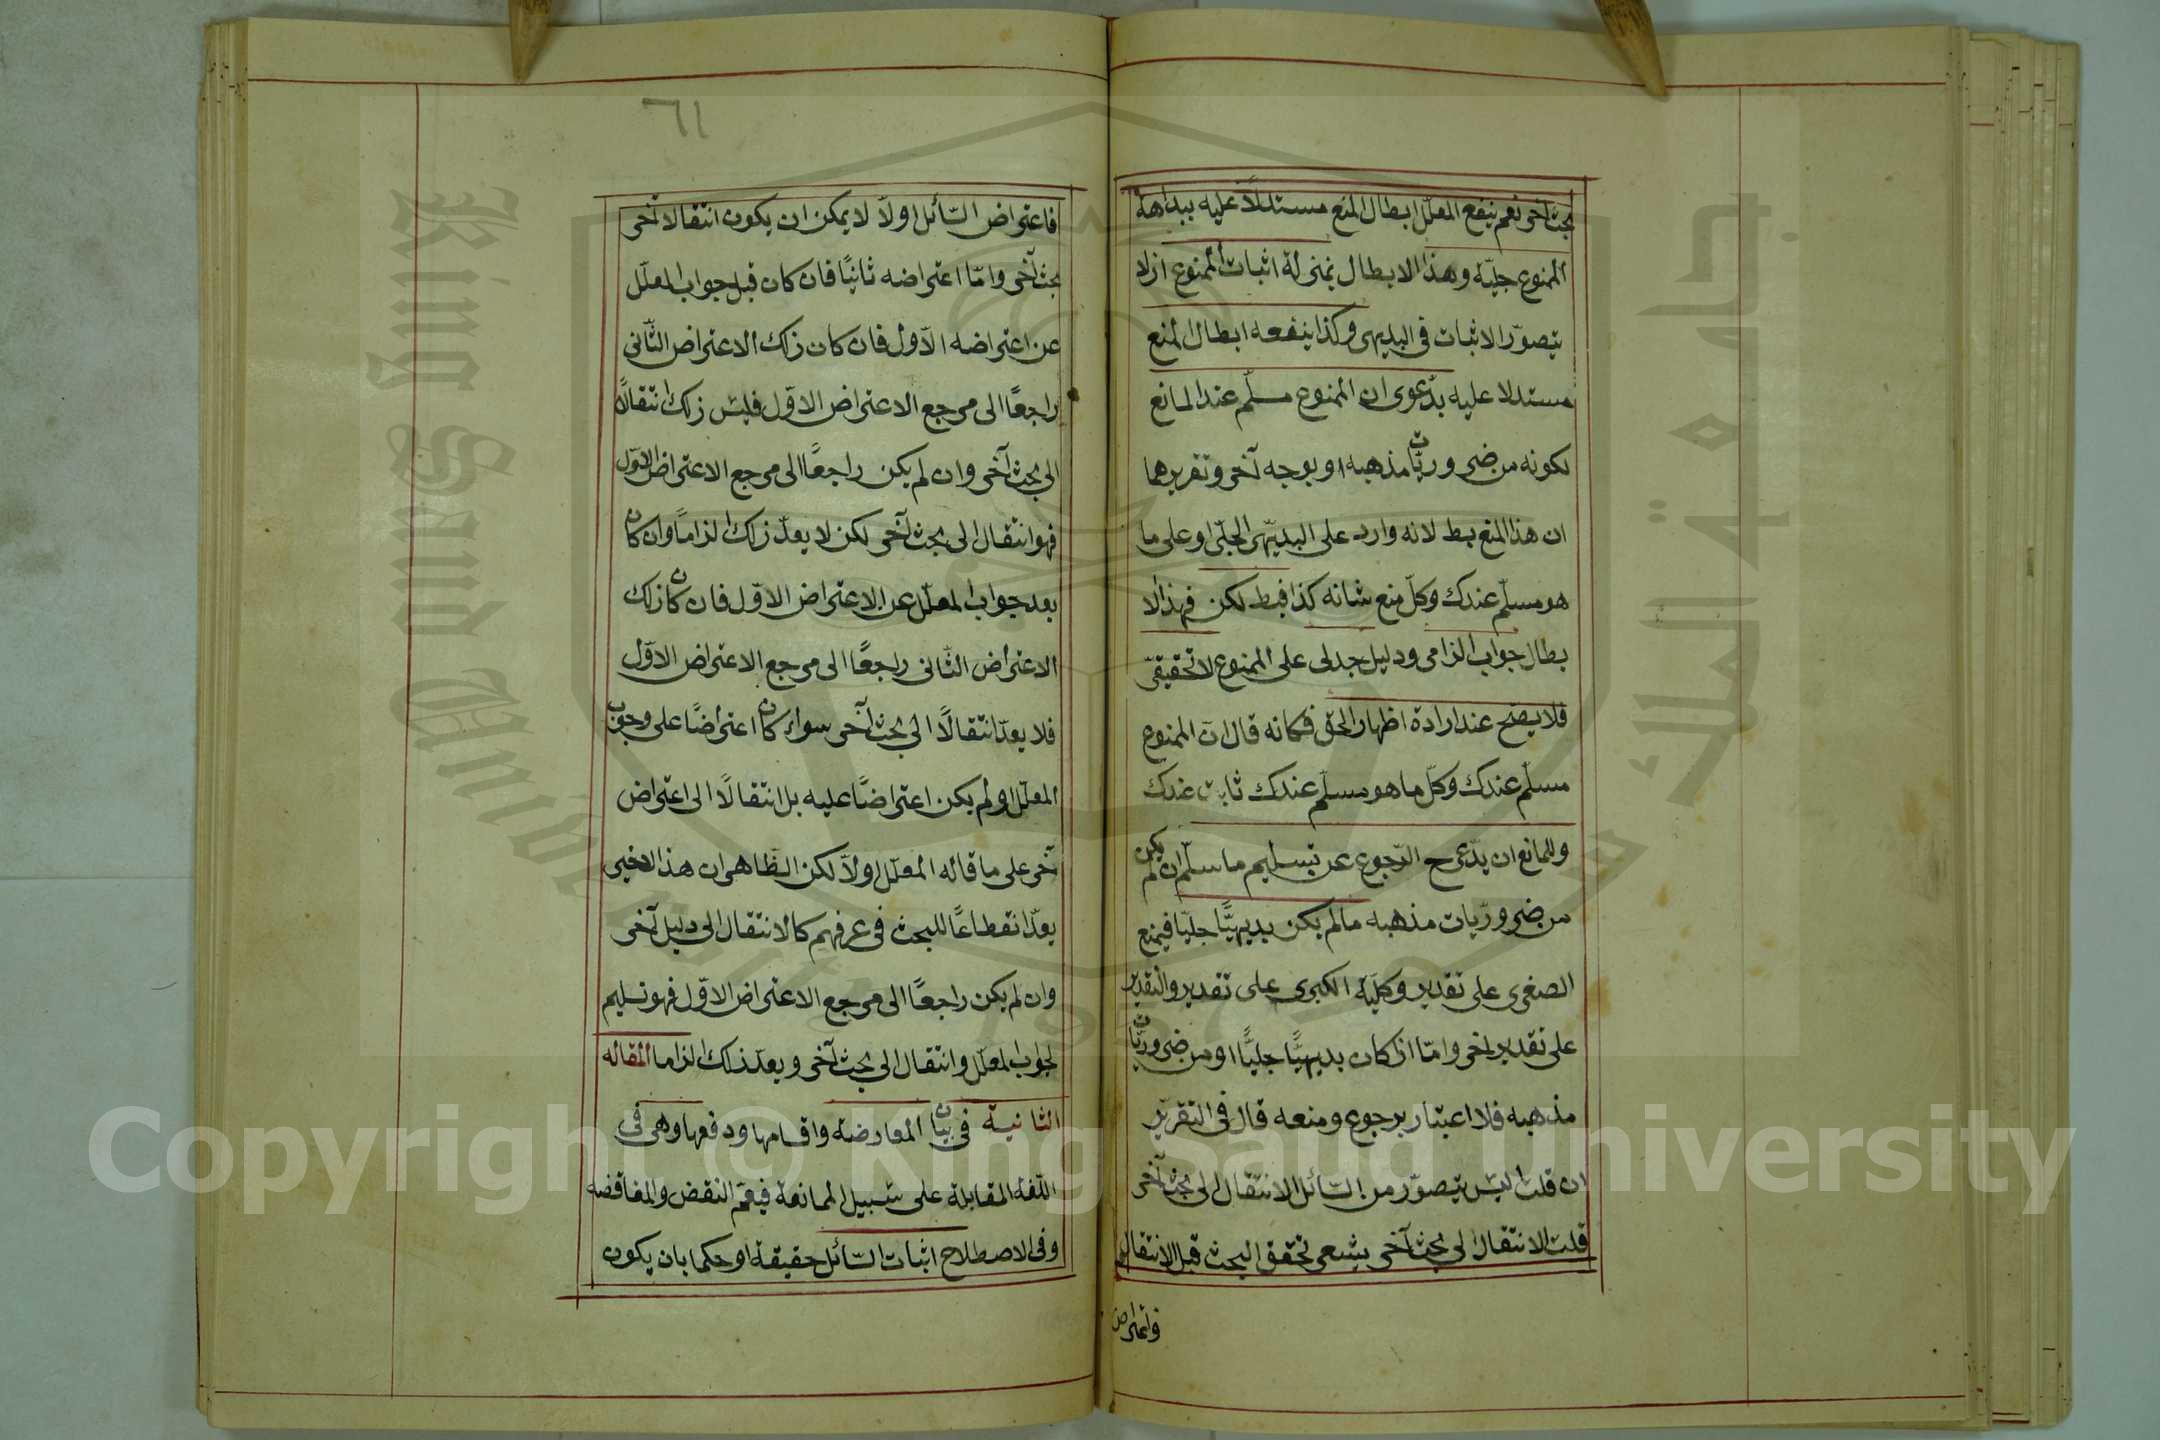 بحث آخر نعم ينفع المعلّل ابطال المنع مستدلاً عليه ببداهة
الممنوع جليّة وهذا الابطال بمنزلة اثبات الممنوع اذ لا
يتصوّر الاثبات فى البديهى وكذا ينفعه ابطال المنع
مستدلا عليه بدعوى ان الممنوع مسلّم عند المانع
لكونه من ضروريّات مذهبه او بوجه آخر وتقريرهما
ان هذا المنع بط لانه وارد على البديهى الجلّى او على ما
هو مسلّم عندك وكلّ منع شانه كذا فبط لكن فهذا الا
بطال جواب الزامى ودليل جدلى على الممنوع لا تحقيقىّ
فلا يصح عند ارادة اظهار الحق فكانه قال انّ الممنوع
مسلّم عندك وكلّ ما هو مسلّم عندك ثابت عندك
وللمانع ان يدّعى ح الرّجوع عن تسليم ما سلّم ان لم يكن
من ضروريّات مذهبه ما لم يكن بديهيًّا جليّا فيمنع
الصغرى على تقدير وكليّة الكبرى على تقدير والتقدير
على تقدير اخر وامّا اذا كان بديهيًّا جليًّا او من ضروريّات
مذهبه فلا اعتبار برجوع ومنعه قال فى التقرير
ان قلت اليس يتصوّر من السّائل الانتقال الى بحث آخر
قلت الانتقال الى بحث آخر يشعر تحقق البحث قبل الانتقال
فاعتراض
٦١
فاعتراض السّائل اولاً لا يمكن ان يكون انتقالا آخر
بحث آخر وامّا اعتراضه ثانيًا فان كان قبل جواب المعلّل
عن اعتراضه الاّول فان كان ذلك الاعتراض الثّانى
راجعًا الى مرجع الاعتراض الاوّل فليس ذلك انتقالاً
الى بحث آخر وان لم يكن راجعًا الى مرجع الاعتراض الاوّل
فهو انتقال الى بحث آخر لكن لا يعدّ ذلك الزامًا وان كان
بعد جواب المعلّل عن الاعتراض الاوّل فان كان ذلك
الاعتراض الثّانى راجعًا الى مرجع الاعتراض الاوّل
فلا يعدّ انتقالاً الى بحث آخر سواء كان اعتراضًا على وجوب
المعلّل او لم يكن اعتراضًا عليه بل انتقالاً الى اعتراض
آخر على ما قاله المعلّل اولاً لكن الظّاهر ان هذا الاخير
يعدّ انقطاعًا للبحث فى عرفهم كالانتقال الى دليل آخر
وان لم يكن راجعًا الى مرجع الاعتراض الاوّل فهو تسليم
لجواب المعلّل وانتقال الى بحث آخر ويعدّ ذلك الزاما المقاله
الثانية فى بيان المعارضة واقسامها ودفعها وهى فى
اللّغة المقابلة على سبيل الممانعة فيعمّ النقض والمناقضه
وفى الاصطلاح اثبات السّائل حقيقة او حكما بان يكون
King Saud University
جامعة الملك سعود
Copyright © King Saud University